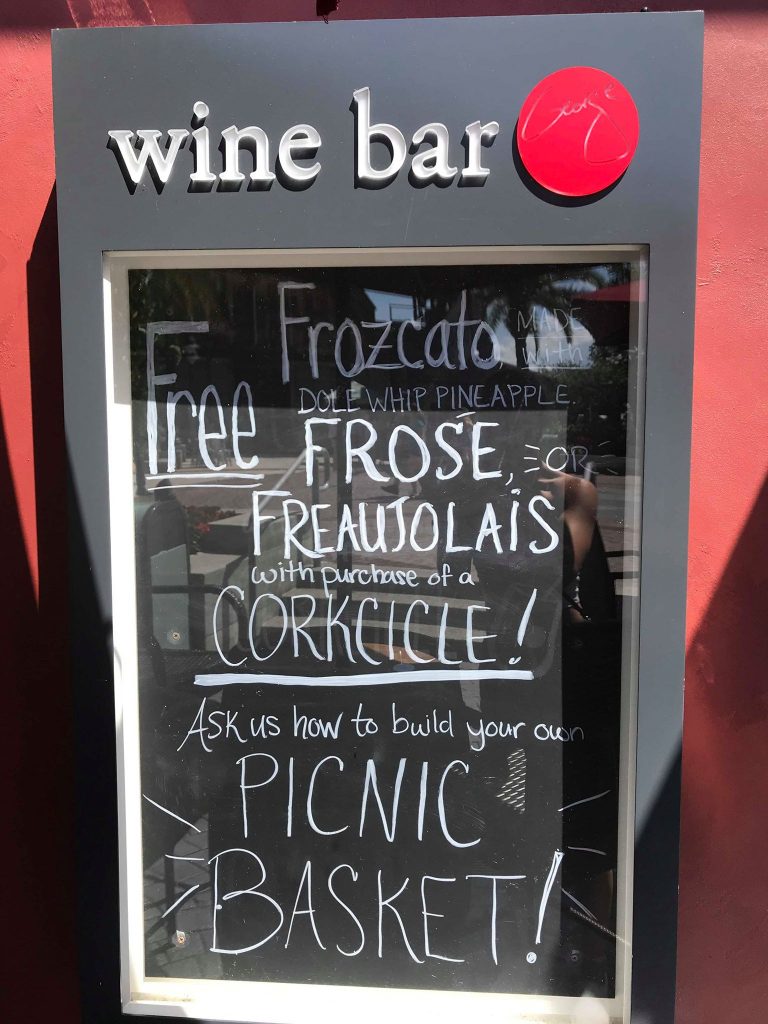 wine bar George
Free Frozcato, MADE with
DOLE WHIP PINEAPPLE.
FROSE, OR
FREAUJOLAIS
with purchase of a
CORKCICLE!
ASK us how to build your own
PICNIC
BASKET!